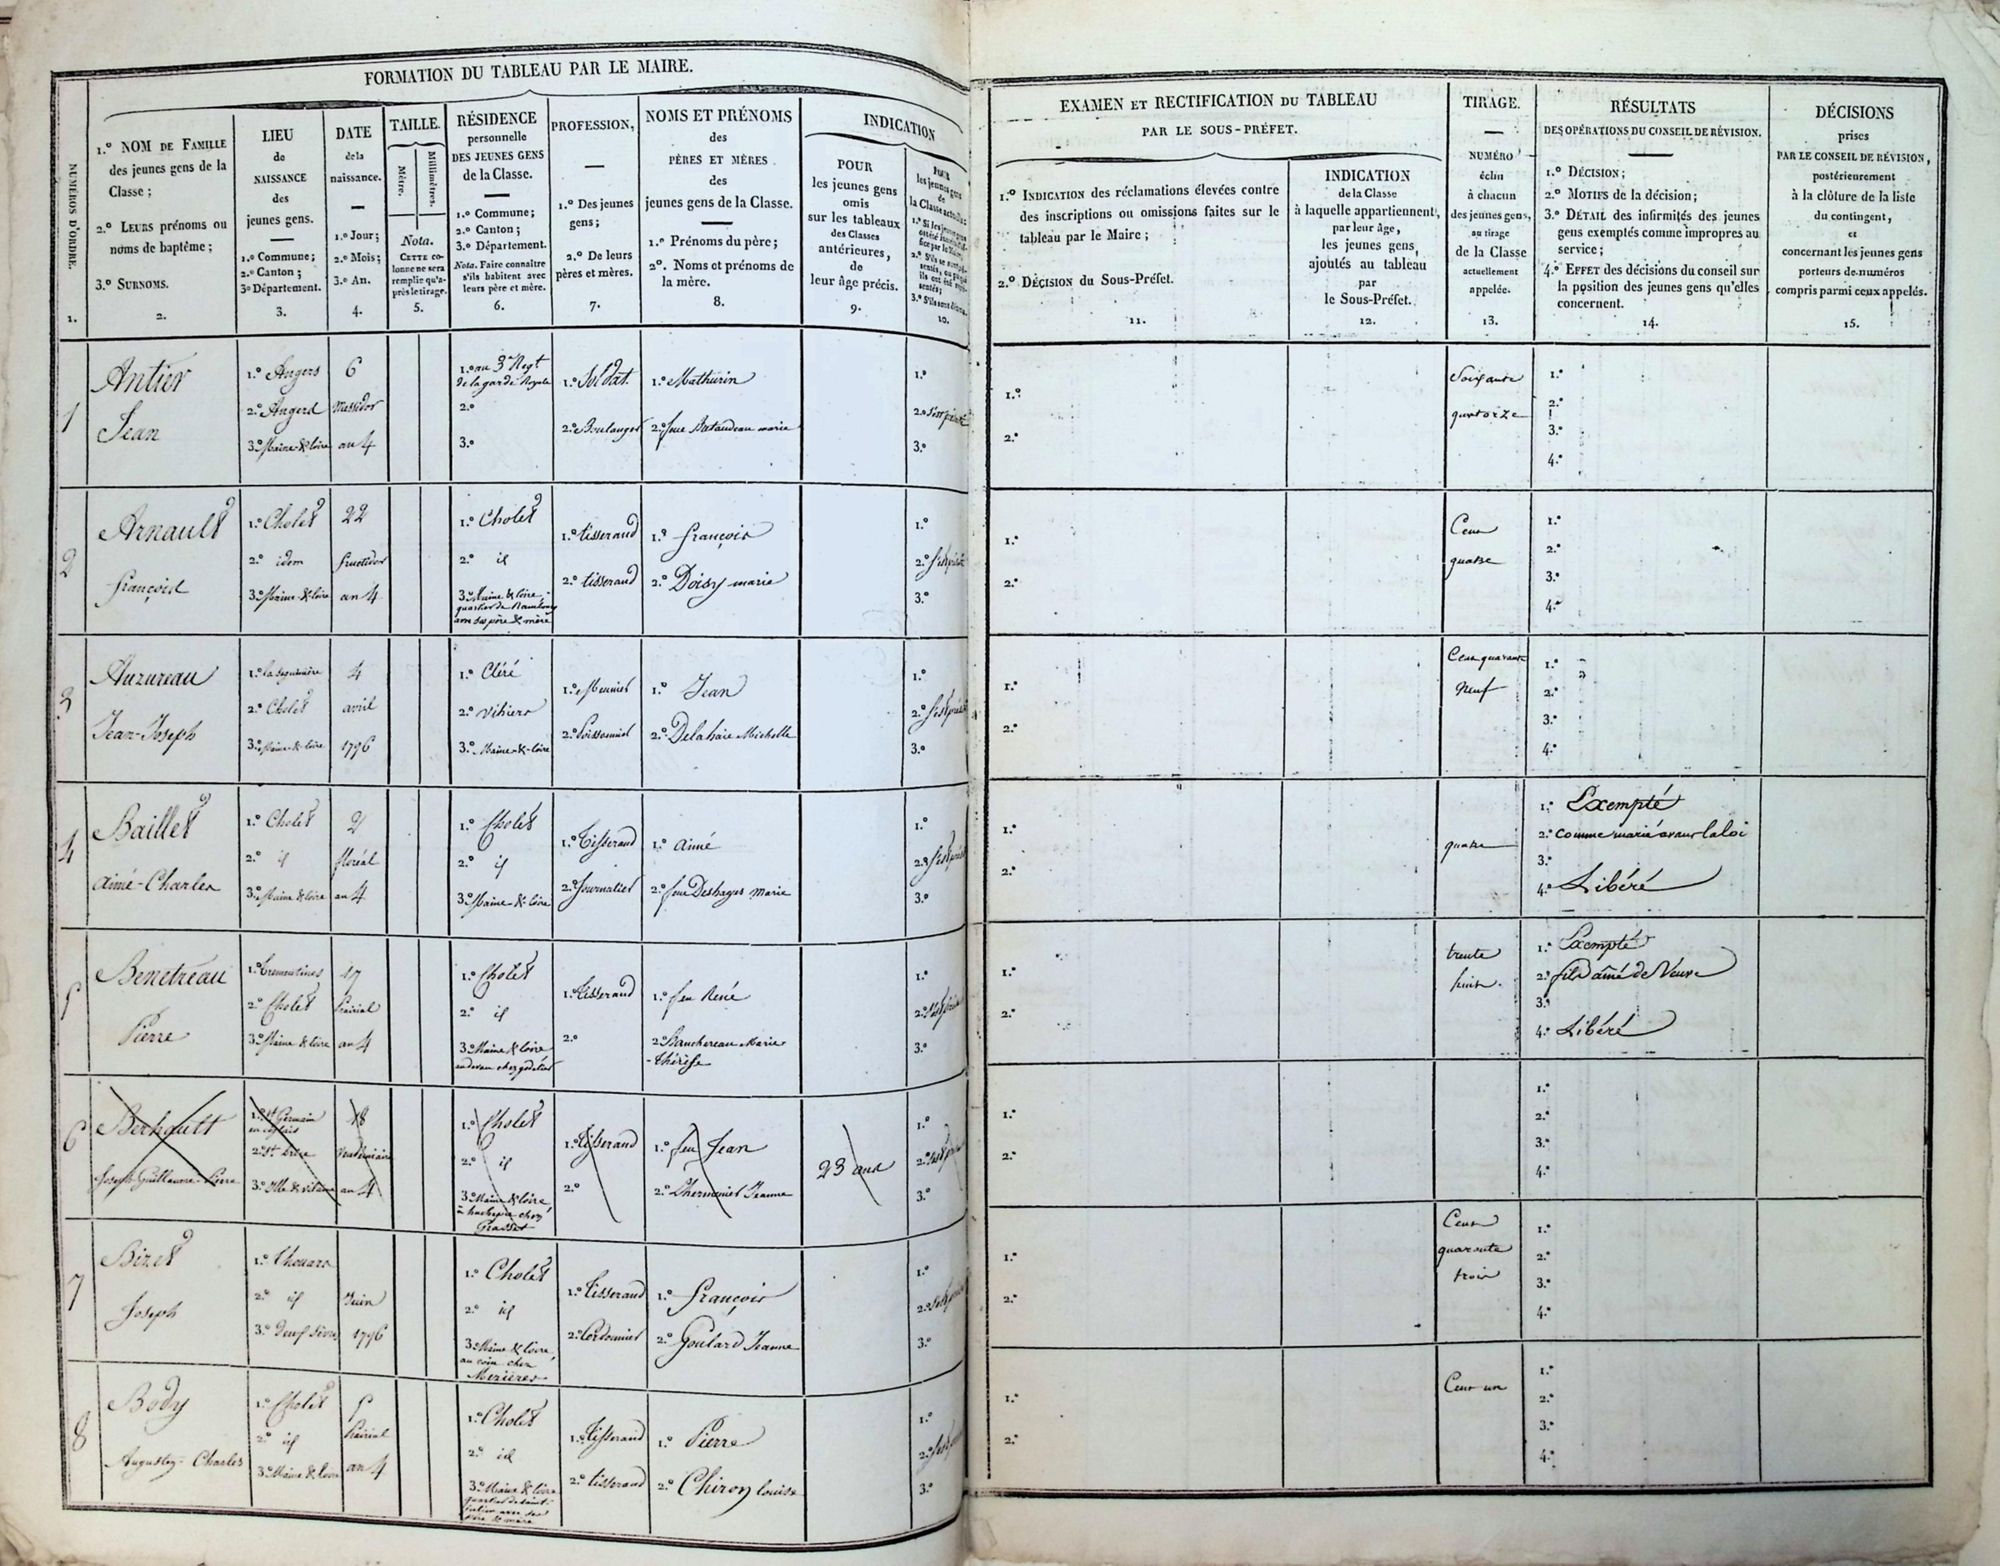 FORMATION DU TABLEAU PAR LE MAIRE.
NUMÉROS D'ORDRE.
1.
1.º NOM DE FAMILLE
des jeunes gens de la
Classe ;
2.º LEURS prénoms ou
noms de baptême ;
3.º SURNOMS.
2.
LIEU
de
NAISSANCE
des
jeunes gens.
1.º Commune ;
2.º Canton ;
3º Département.
3.
DATE
de la
naissance.
1.º Jour ;
2.º Mois ;
3.º An.
4.
TAILLE.
Mètre.
Millimètres.
Nota.
CETTE co-
lonne ne sera
remplie qu'a-
près le tirage.
5.
RÉSIDENCE
personnelle
DES JEUNES GENS
de la Classe.
1.º Commune ;
2.º Canton ;
3.º Département.
Nota. Faire connaître
s'ils habitent avec
leurs père et mère.
6.
PROFESSION,
1.º Des jeunes
gens ;
2.º De leurs
pères et mères.
7.
NOMS ET PRÉNOMS
des
PÈRES ET MÈRES
des
jeunes gens de la Classe.
1.º Prénoms du père ;
2º. Noms et prénoms de
la mère.
8.
INDICATION
POUR
les jeunes gens
omis
sur les tableaux
des Classes
antérieures,
de
leur âge précis.
9.
POUR
les jeunes gens
de
la Classe actuelle :
10.
EXAMEN ET RECTIFICATION DU TABLEAU
PAR LE SOUS-PRÉFET.
1.º INDICATION des réclamations élevées contre
des inscriptions ou omissions faites sur le
tableau par le Maire ;
2.º DÉCISION du Sous-Préfet.
11.
INDICATION
de la Classe
à laquelle appartiennent,
par leur âge,
les jeunes gens,
ajoutés au tableau
par
le Sous-Préfet.
12.
TIRAGE.
NUMÉRO
échu
à chacun
des jeunes gens,
au tirage
de la Classe
actuellement
appelée.
13.
RÉSULTATS
DES OPÉRATIONS DU CONSEIL DE RÉVISION.
1.º DÉCISION ;
2.º MOTIFS de la décision ;
3.º DÉTAIL des infirmités des jeunes
gens exemptés comme impropres au
service ;
4.º EFFET des décisions du conseil sur
la position des jeunes gens qu'elles
concernent.
14.
DÉCISIONS
prises
PAR LE CONSEIL DE RÉVISION,
postérieurement
à la clôture de la liste
du contingent,
et
concernant les jeunes gens
porteurs de numéros
compris parmi ceux appelés.
15.
1
Antier
Jean
1.º Angers
2.º Angers
3.º Maine-&-loire
6
Messidor
an 4
1.º au 3e Regt
de la garde Royale
2.º
3.º
1.º Soldat
2.º Boulanger
1.º Mathurin
2.º feue Bataudeau marie
1.º
2.º
3.º
1.º
2.º
Soixante
quatorze
1.º
2.º
3.º
4.º
2
Arnault
françois
1.º Cholet
2.º idem
3.º Maine & loire
22
fructidor
an 4
1.º Cholet
2.º id
3.º Maine & loire
avec ses père & mère
1.º tisserand
2.º tisserand
1.º françois
2.º Doisy marie
1.º
2.º
3.º
1.º
2.º
Cent
quatre
1.º
2.º
3.º
4.º
3
Auzureau
Jean-Joseph
1.º la Seguinière
2.º Cholet
3.º Maine-&-loire
4
avril
1796
1.º Cléré
2.º vihiers
3.º Maine-&-loire
1.º Meunier
2.º Poissonnier
1.º Jean
2.º Delahaie Michelle
1.º
2.º
3.º
1.º
2.º
Cent quarante
Neuf
1.º
2.º
3.º
4.º
4
Baillet
aimé-Charles
1.º Cholet
2.º id
3.º Maine & loire
2
floréal
an 4
1.º Cholet
2.º id
3.º Maine-&-loire
1.º Tisserand
2.º Journalier
1.º aimé
2.º feue Deshayes Marie
1.º
2.º
3.º
1.º
2.º
quatre
1.º Exempté
2.º comme marié avant la loi
3.º
4.º Libéré
5
Benetreau
Pierre
1.º Trementines
2.º Cholet
3.º Maine & loire
17
Prairial
an 4
1.º Cholet
2.º id
3.º Maine & loire
1.º Tisserand
2.º
1.º feu René
2.º Bauchereau Marie-
thérèse
1.º
2.º
3.º
1.º
2.º
trente
huit
1.º Exempté
2.º fils aîné de Veuve
3.º
4.º Libéré
6
Berhault
Joseph-Guillaume-Pierre
1.º St Germain
en coglais
2.º St brice
3.º Ille & vilaine
18
Vendémiaire
an 4
1.º Cholet
2.º id
3.º Maine & loire
1.º Tisserand
2.º
1.º feu Jean
2.º Lhermenier Jeanne
23 ans
1.º
2.º
3.º
1.º
2.º
1.º
2.º
3.º
4.º
7
Biret
Joseph
1.º Thouars
2.º id
3.º Deux Sèvres
Juin
1796
1.º Cholet
2.º id
3.º Maine & loire
au coin chez
Mezières
1.º Tisserand
2.º Cordonnier
1.º françois
2.º Goulard Jeanne
1.º
2.º
3.º
1.º
2.º
Cent
quarante
trois
1.º
2.º
3.º
4.º
8
Body
Augustin-Charles
1.º Cholet
2.º id
3.º Maine & loire
5
Prairial
an 4
1.º Cholet
2.º id
3.º Maine & loire
père & mère
1.º Tisserand
2.º tisserand
1.º Pierre
2.º Chiron louise
1.º
2.º
3.º
1.º
2.º
Cent un
1.º
2.º
3.º
4.º